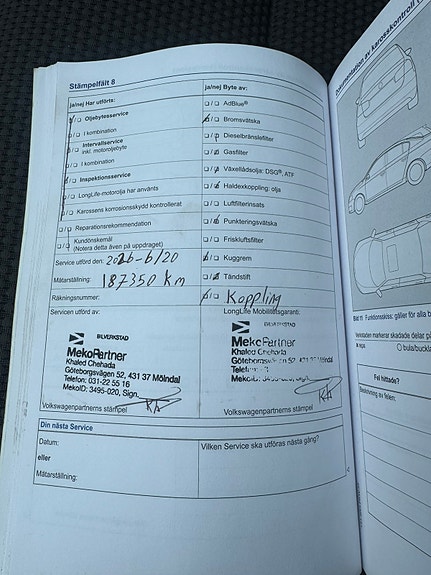 Stämpelfält 8
ja/nej Har utförts:
Oljebytesservice
I kombination
Intervallservice
inkl. motoroljebyte
I kombination
Inspektionsservice
LongLife-motorolja har använts
Karossens korrosionsskydd kontrollerat
Reparationsrekommendation
Kundönskemål
(Notera detta även på uppdraget)
Service utförd den: 2026-6/20
Mätarställning: 187350 km
Räkningsnummer:
ja/nej Byte av:
AdBlue®
Bromsvätska
Dieselbränslefilter
Gasfilter
Växellådsolja: DSG®, ATF
Haldexkoppling: olja
Luftfilterinsats
Punkteringsvätska
Friskluftsfilter
Kuggrem
Tändstift
Koppling
Servicen utförd av:
BILVERKSTAD
MekoPartner
Khaled Chehada
Göteborgsvägen 52, 431 37 Mölndal
Telefon: 031-22 55 16
MekoID: 3495-020, Sign.
KA
Volkswagenpartnerns stämpel
LongLife Mobilitetsgaranti:
BILVERKSTAD
MekoPartner
Khaled Chehada
KA
Volkswagenpartnerns stämpel
Din nästa Service
Datum:
eller
Mätarställning:
Vilken Service ska utföras nästa gång?
Dokumentation av karosskontroll
Bild 11 Funktionsskiss: gäller för alla
Verkstaden markerar skadade delar på
bula/buckla
Fel hittade?
Beskrivning av felen: